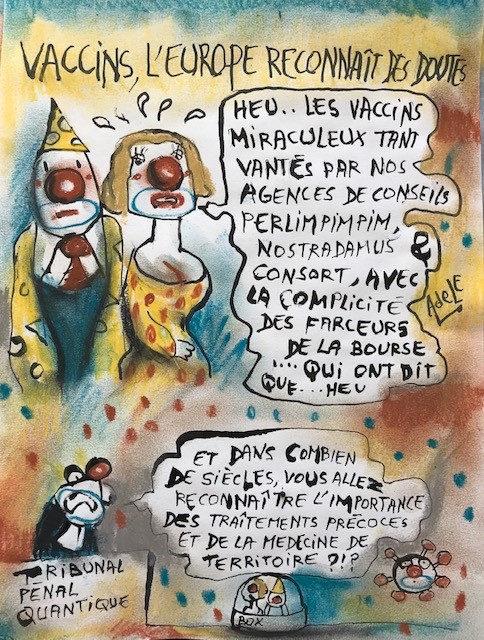 VACCINS, L'EUROPE RECONNAÎT DES DOUTES
HEU.. LES VACCINS
MIRACULEUX TANT
VANTÉS PAR NOS
AGENCES DE CONSEILS
PERLIMPIMPIM,
NOSTRADAMUS &
CONSORT, AVEC
LA COMPLICITÉ
DES FARCEURS
DE LA BOURSE
.... QUI ONT DIT
QUE... HEU
AdeLE
ET DANS COMBIEN
DE SIÈCLES, VOUS ALLEZ
RECONNAÎTRE L'IMPORTANCE
DES TRAÎTEMENTS PRÉCOCES
ET DE LA MEDECINE DE
TERRITOIRE ?!?
TRIBUNAL
PÉNAL
QUANTIQUE
BOX